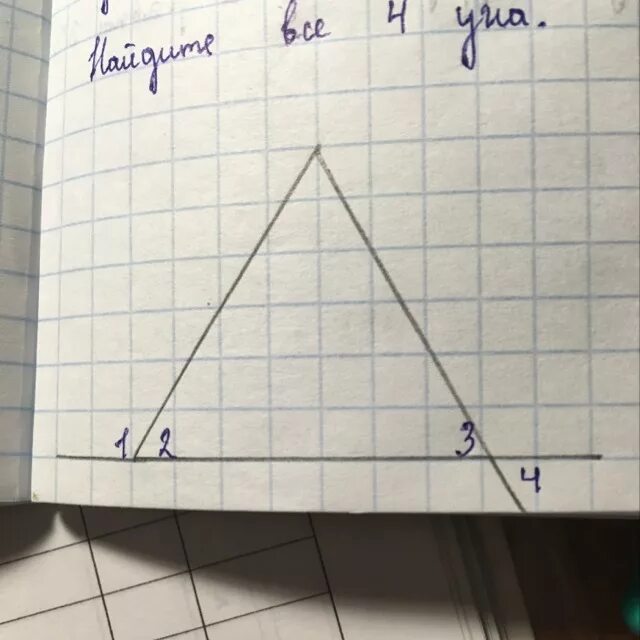 Найдите все 4 угла.
1 2 3
4